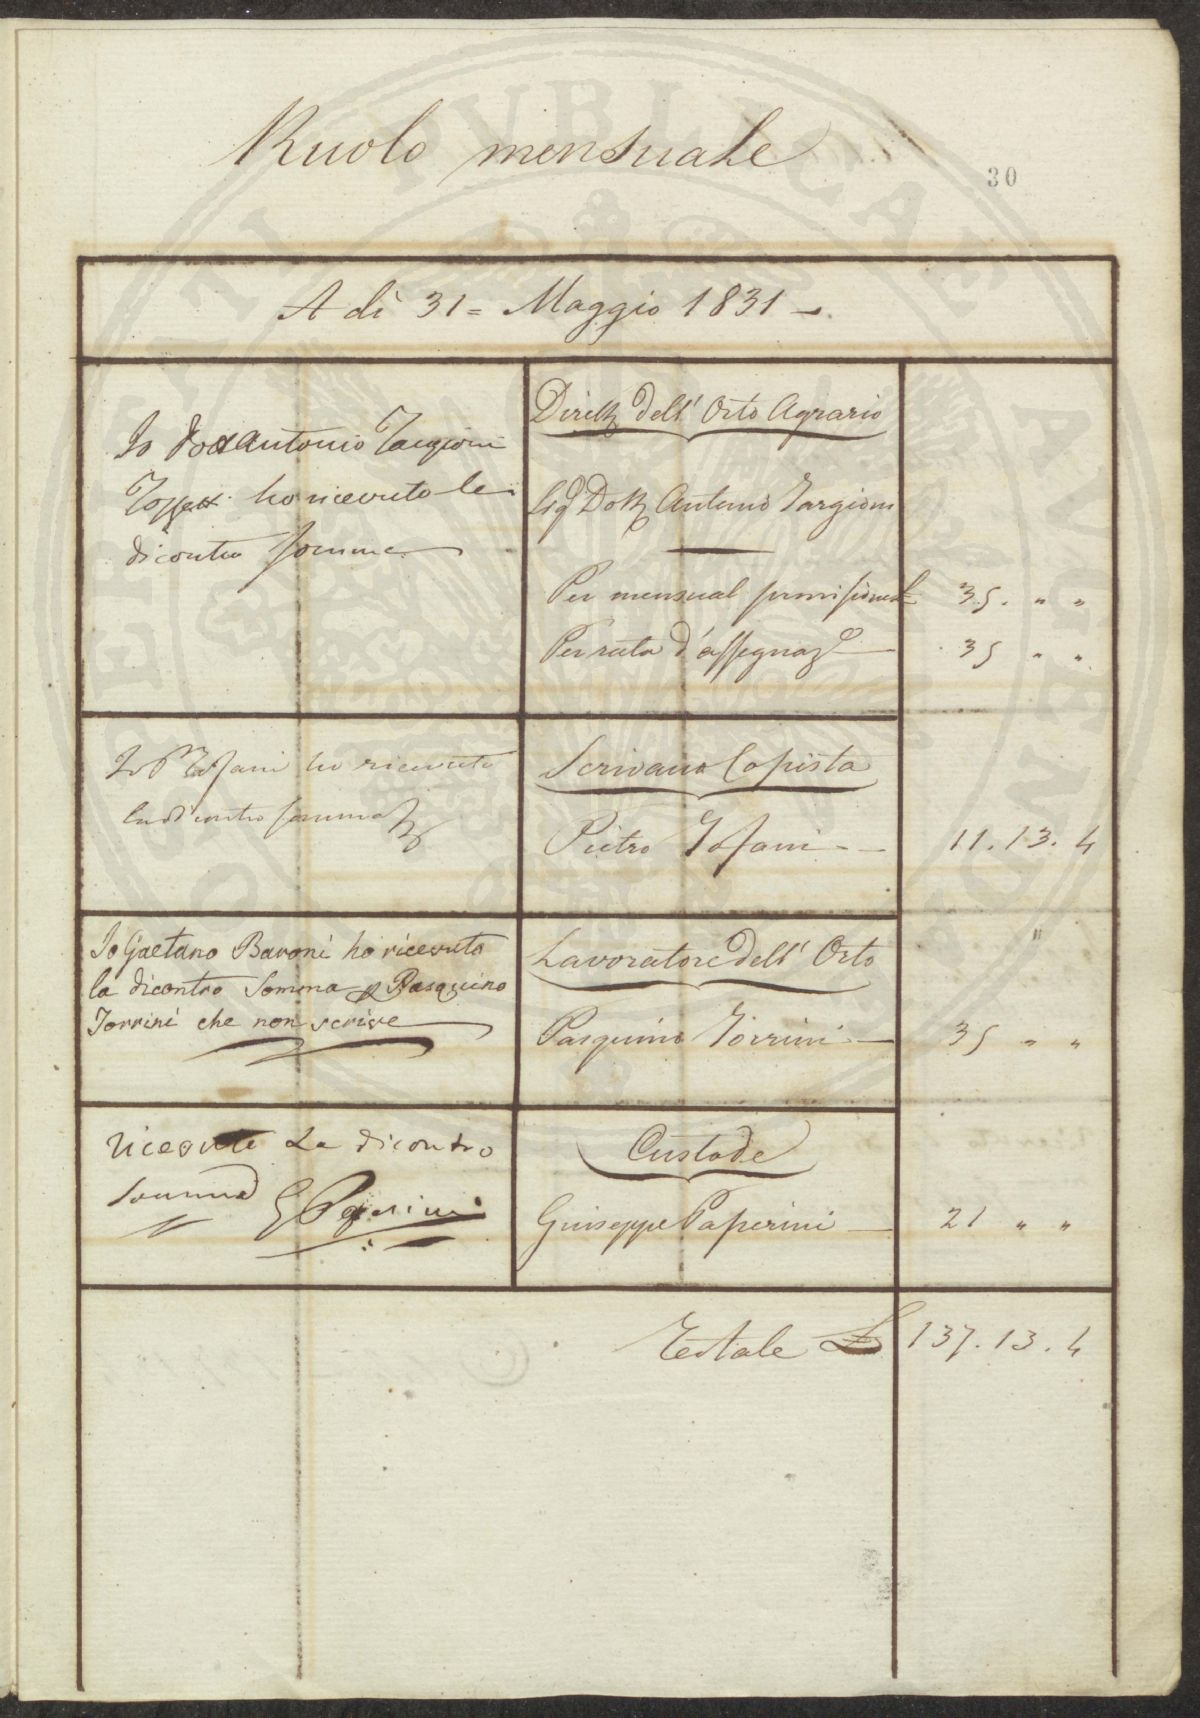 Ruolo mensuale
30
A dì 31 = Maggio 1831
Io Dott Antonio Targioni
Tozzett ho ricevuto le
dicontro somme
Dirett dell' Orto Agrario
Sig Dott Antonio Targioni
Per mensual provisione £ 35. " "
Per rata d'assegnaz.e 35 " "
Io P Tofani ho ricevuto
la dicontro somma
Scrivano Copista
Pietro Tofani 11.13.4
"
Io Gaetano Baroni ho ricevuto
la dicontro Somma p Pasquino
Torrini che non scrive
Lavoratore dell' Orto
Pasquino Torrini 35 " "
ricevuto La dicontro
somma
G Paperini
Custode
Giuseppe Paperini 21 " "
Totale £ 137.13.4
PUBLICAE